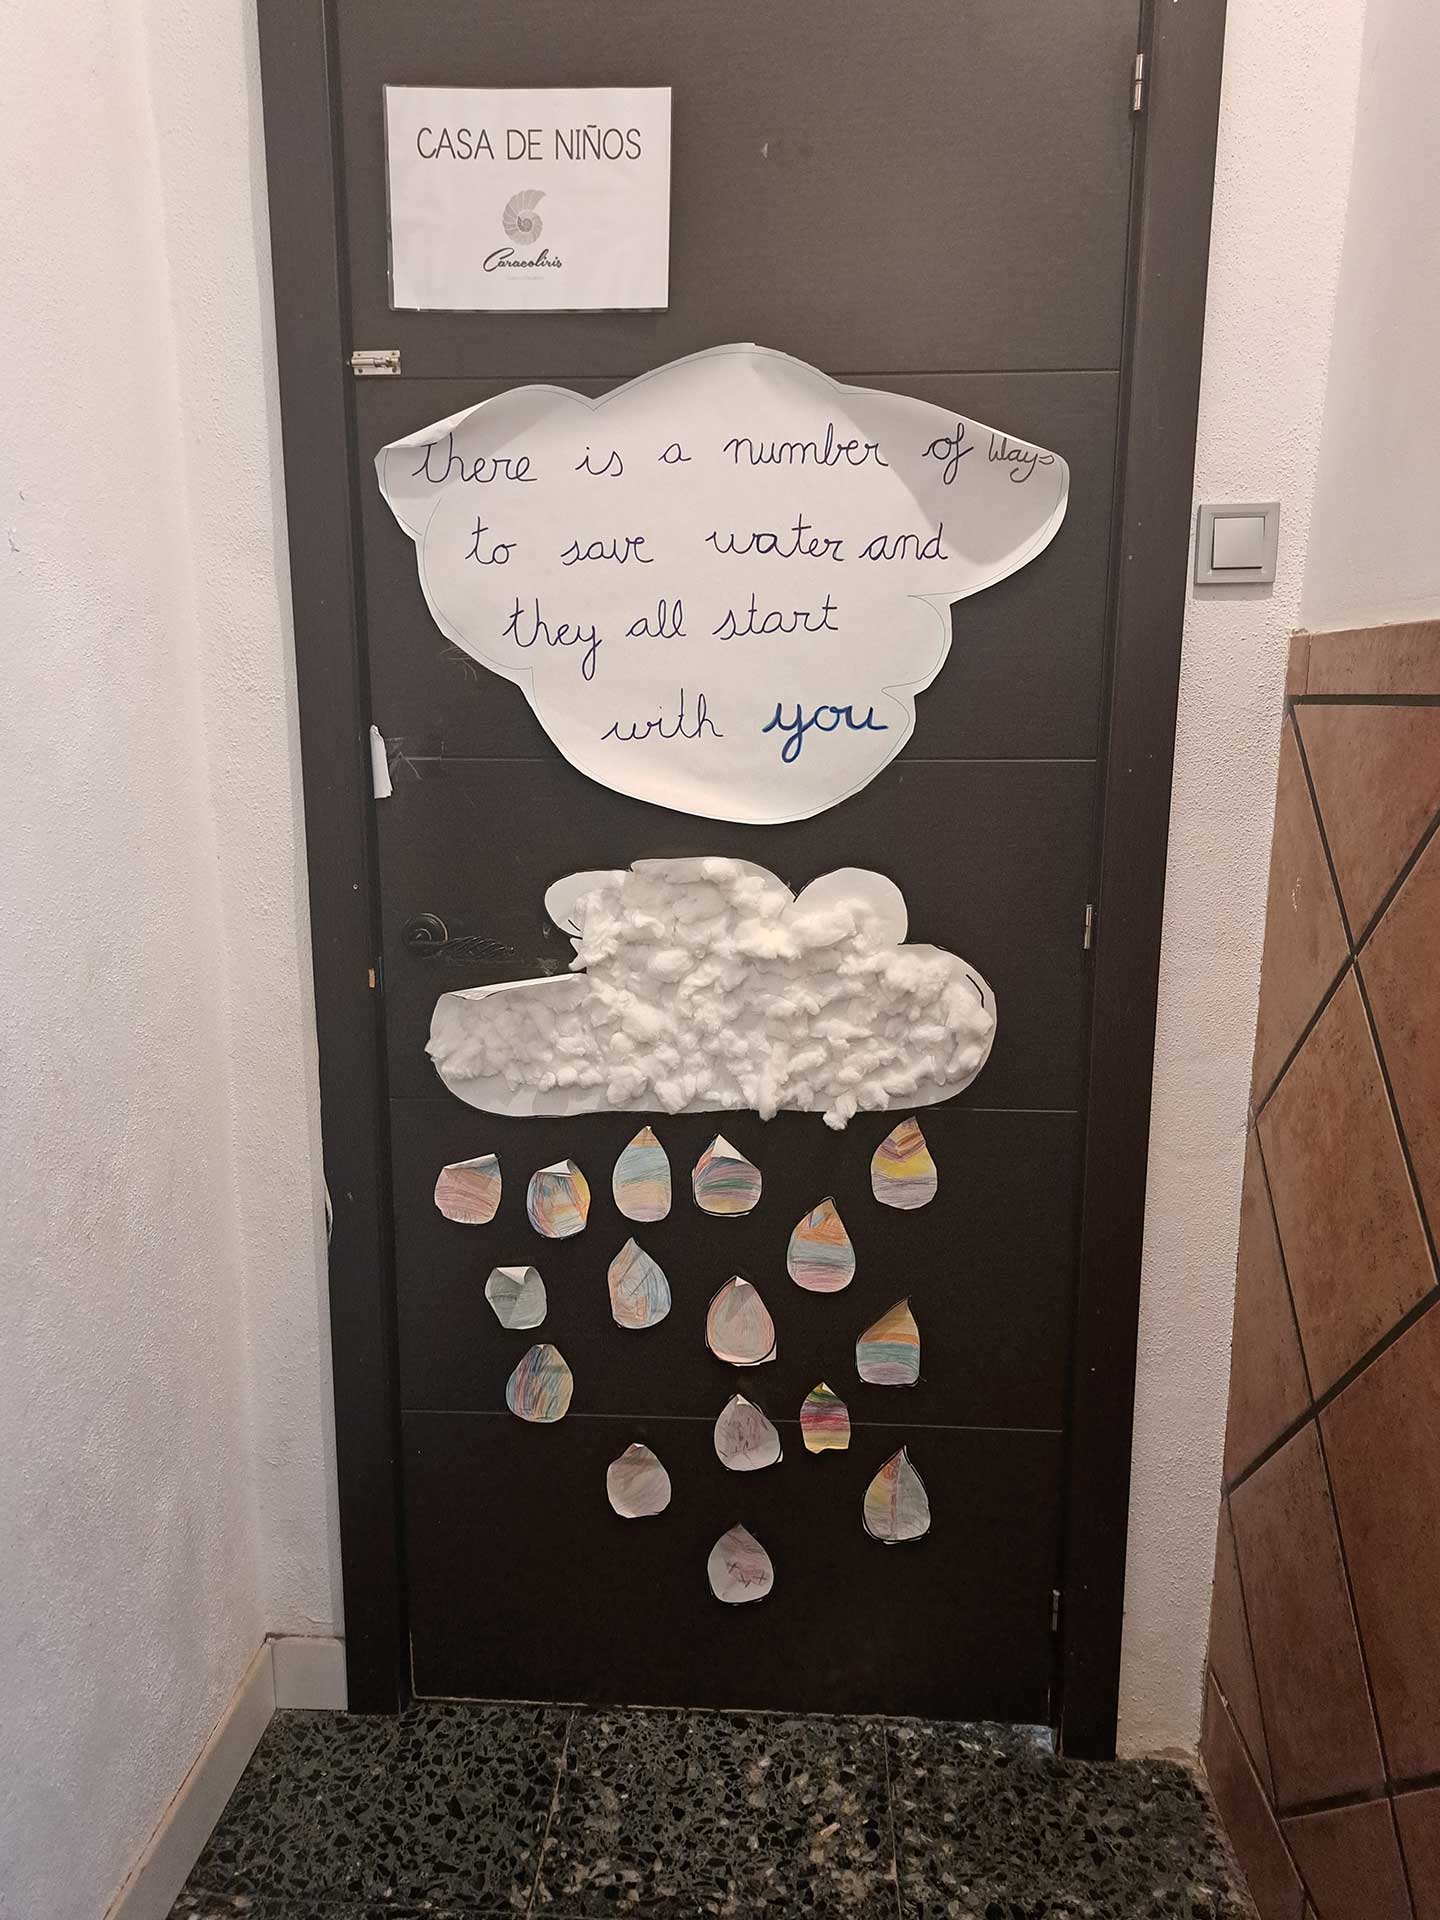 CASA DE NIÑOS
Caracoliris
there is a number of Ways
to save water and
they all start
with you